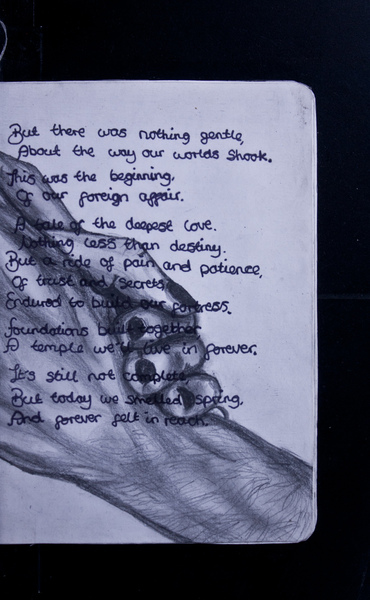 But there was nothing gentle,
About the way our worlds shook.
This was the beginning,
Of our foreign affair.
A tale of the deepest love.
Nothing less than destiny.
But a ride of pain and patience,
Of trust and secrets
Endured to build our fortress.
foundations built together
A temple we'll live in forever.
It's still not complete,
But today we smelled spring,
And forever felt in reach.